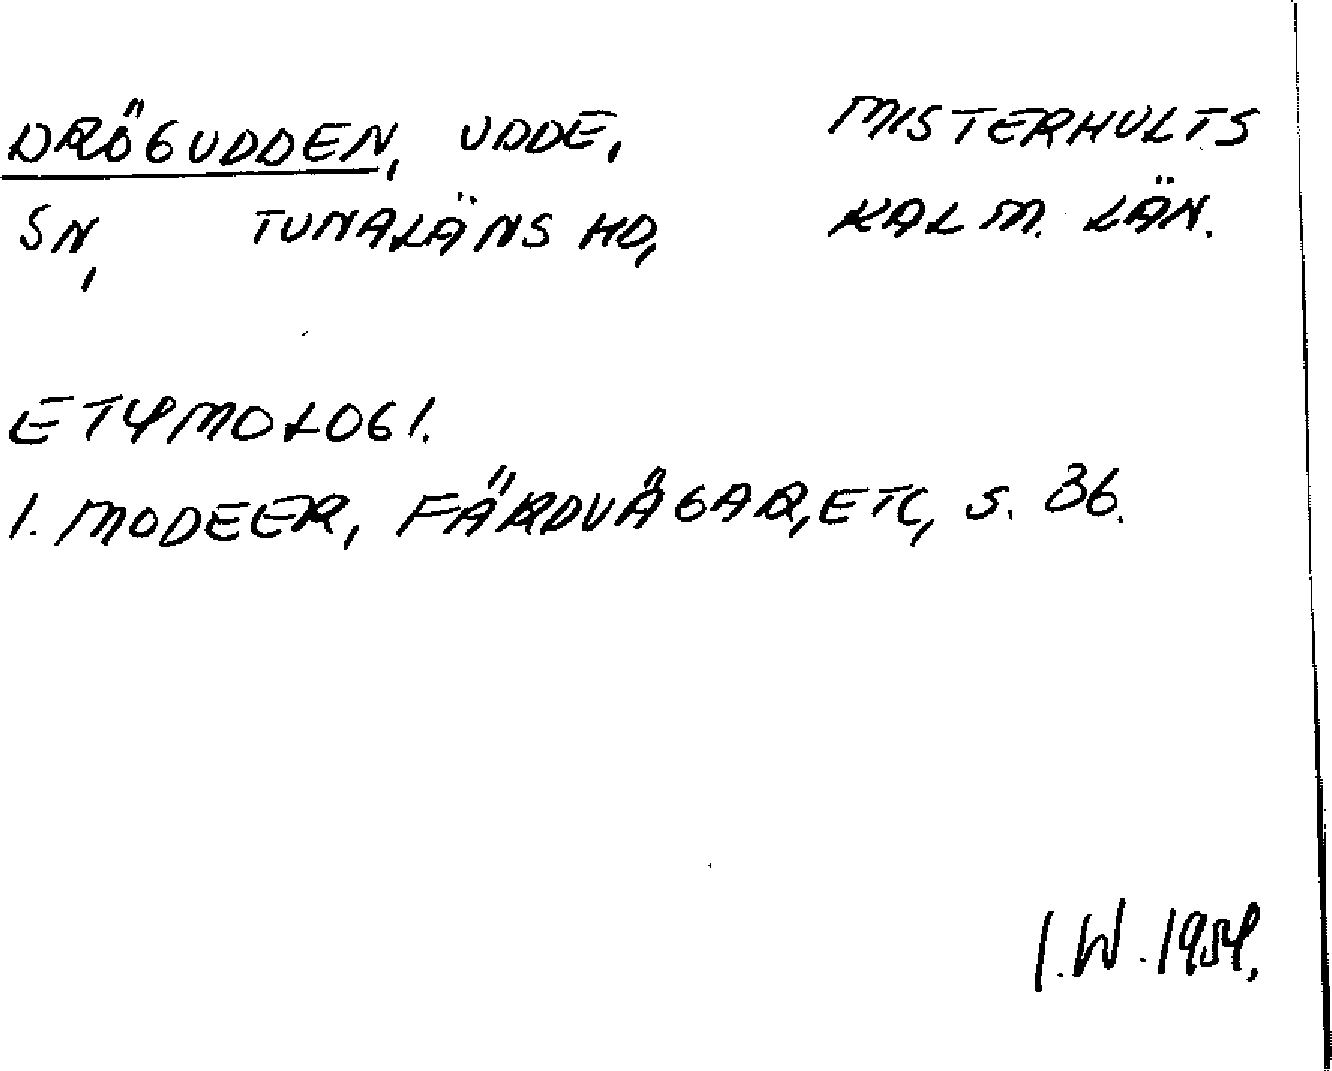 DRÖGUDDEN, UDDE, MISTERHULTS
SN, TUNALÄNS HD, KALM. LÄN.
ETYMOLOGI.
1. MODEER, FÄRDVÄGAR, ETC, S. 36.
I. W. 1954.